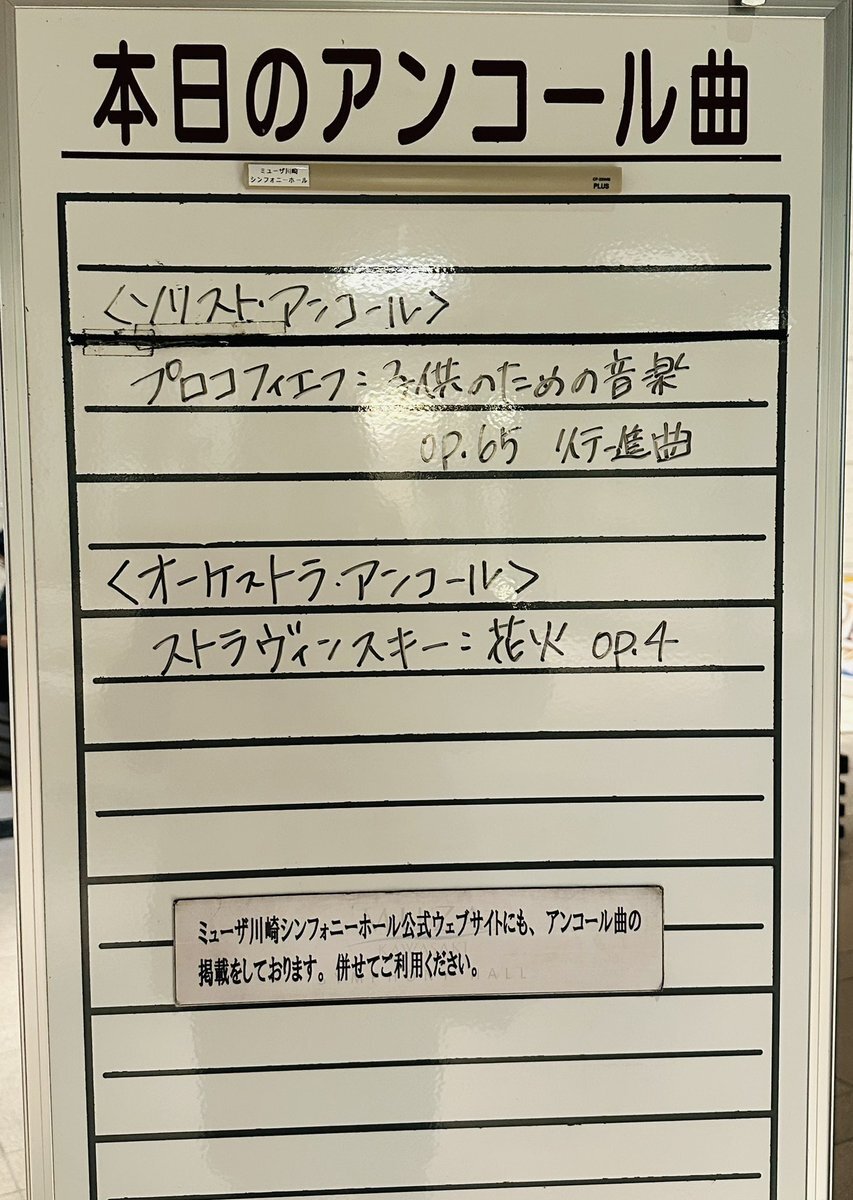 本日のアンコール曲
ミューザ川崎
シンフォニーホール
PLUS
<ソリスト・アンコール>
プロコフィエフ:子供のための音楽
op.65 行進曲
<オーケストラ・アンコール>
ストラヴィンスキー:花火 op.4
ミューザ川崎シンフォニーホール公式ウェブサイトにも、アンコール曲の
掲載をしております。併せてご利用ください。